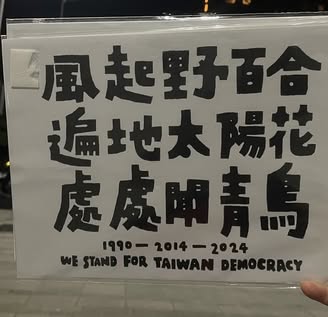 風起野百合
遍地太陽花
處處聞青鳥
1990—2014—2024
WE STAND FOR TAIWAN DEMOCRACY